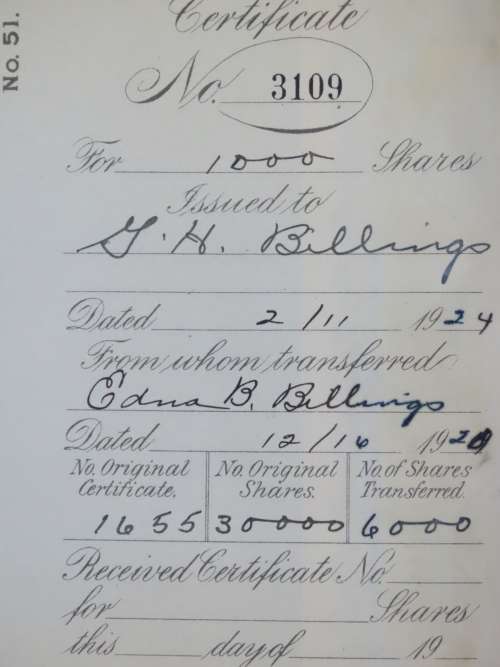 No. 51.
Certificate
No. 3109
For 1000 Shares
Issued to
G. H. Billings
Dated 2/11 1924
From whom transferred
Edna B. Billings
Dated 12/16 192
No. Original Certificate. No. Original Shares. No. of Shares Transferred.
1655 30000 6000
Received Certificate No.
for Shares
this day of 19